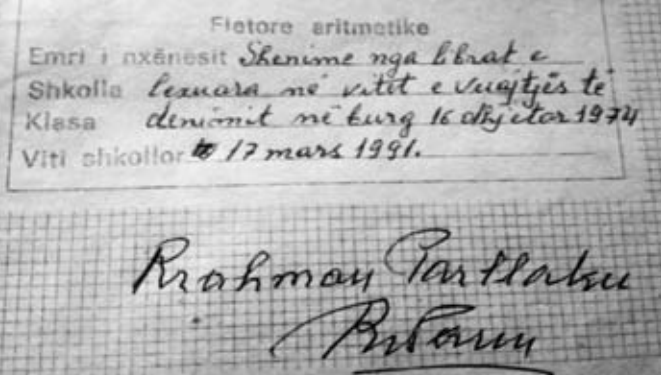 Fletore aritmetike
Emri i nxënësit Shenime nga librat e
Shkolla lexuara në vitit e vuajtjës të
Klasa denimit në burg 16 dhjetor 1974
Viti shkollor 17 mars 1991.
Rrahman Parllaku